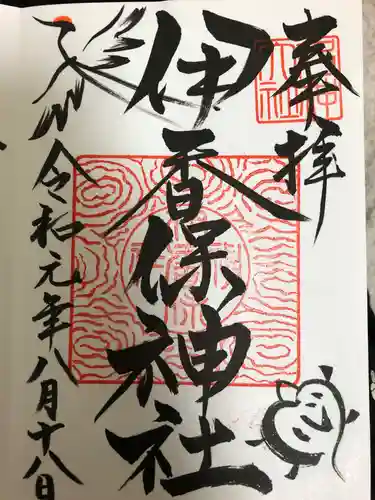 奉拝
伊香保神社
令和元年八月十八日